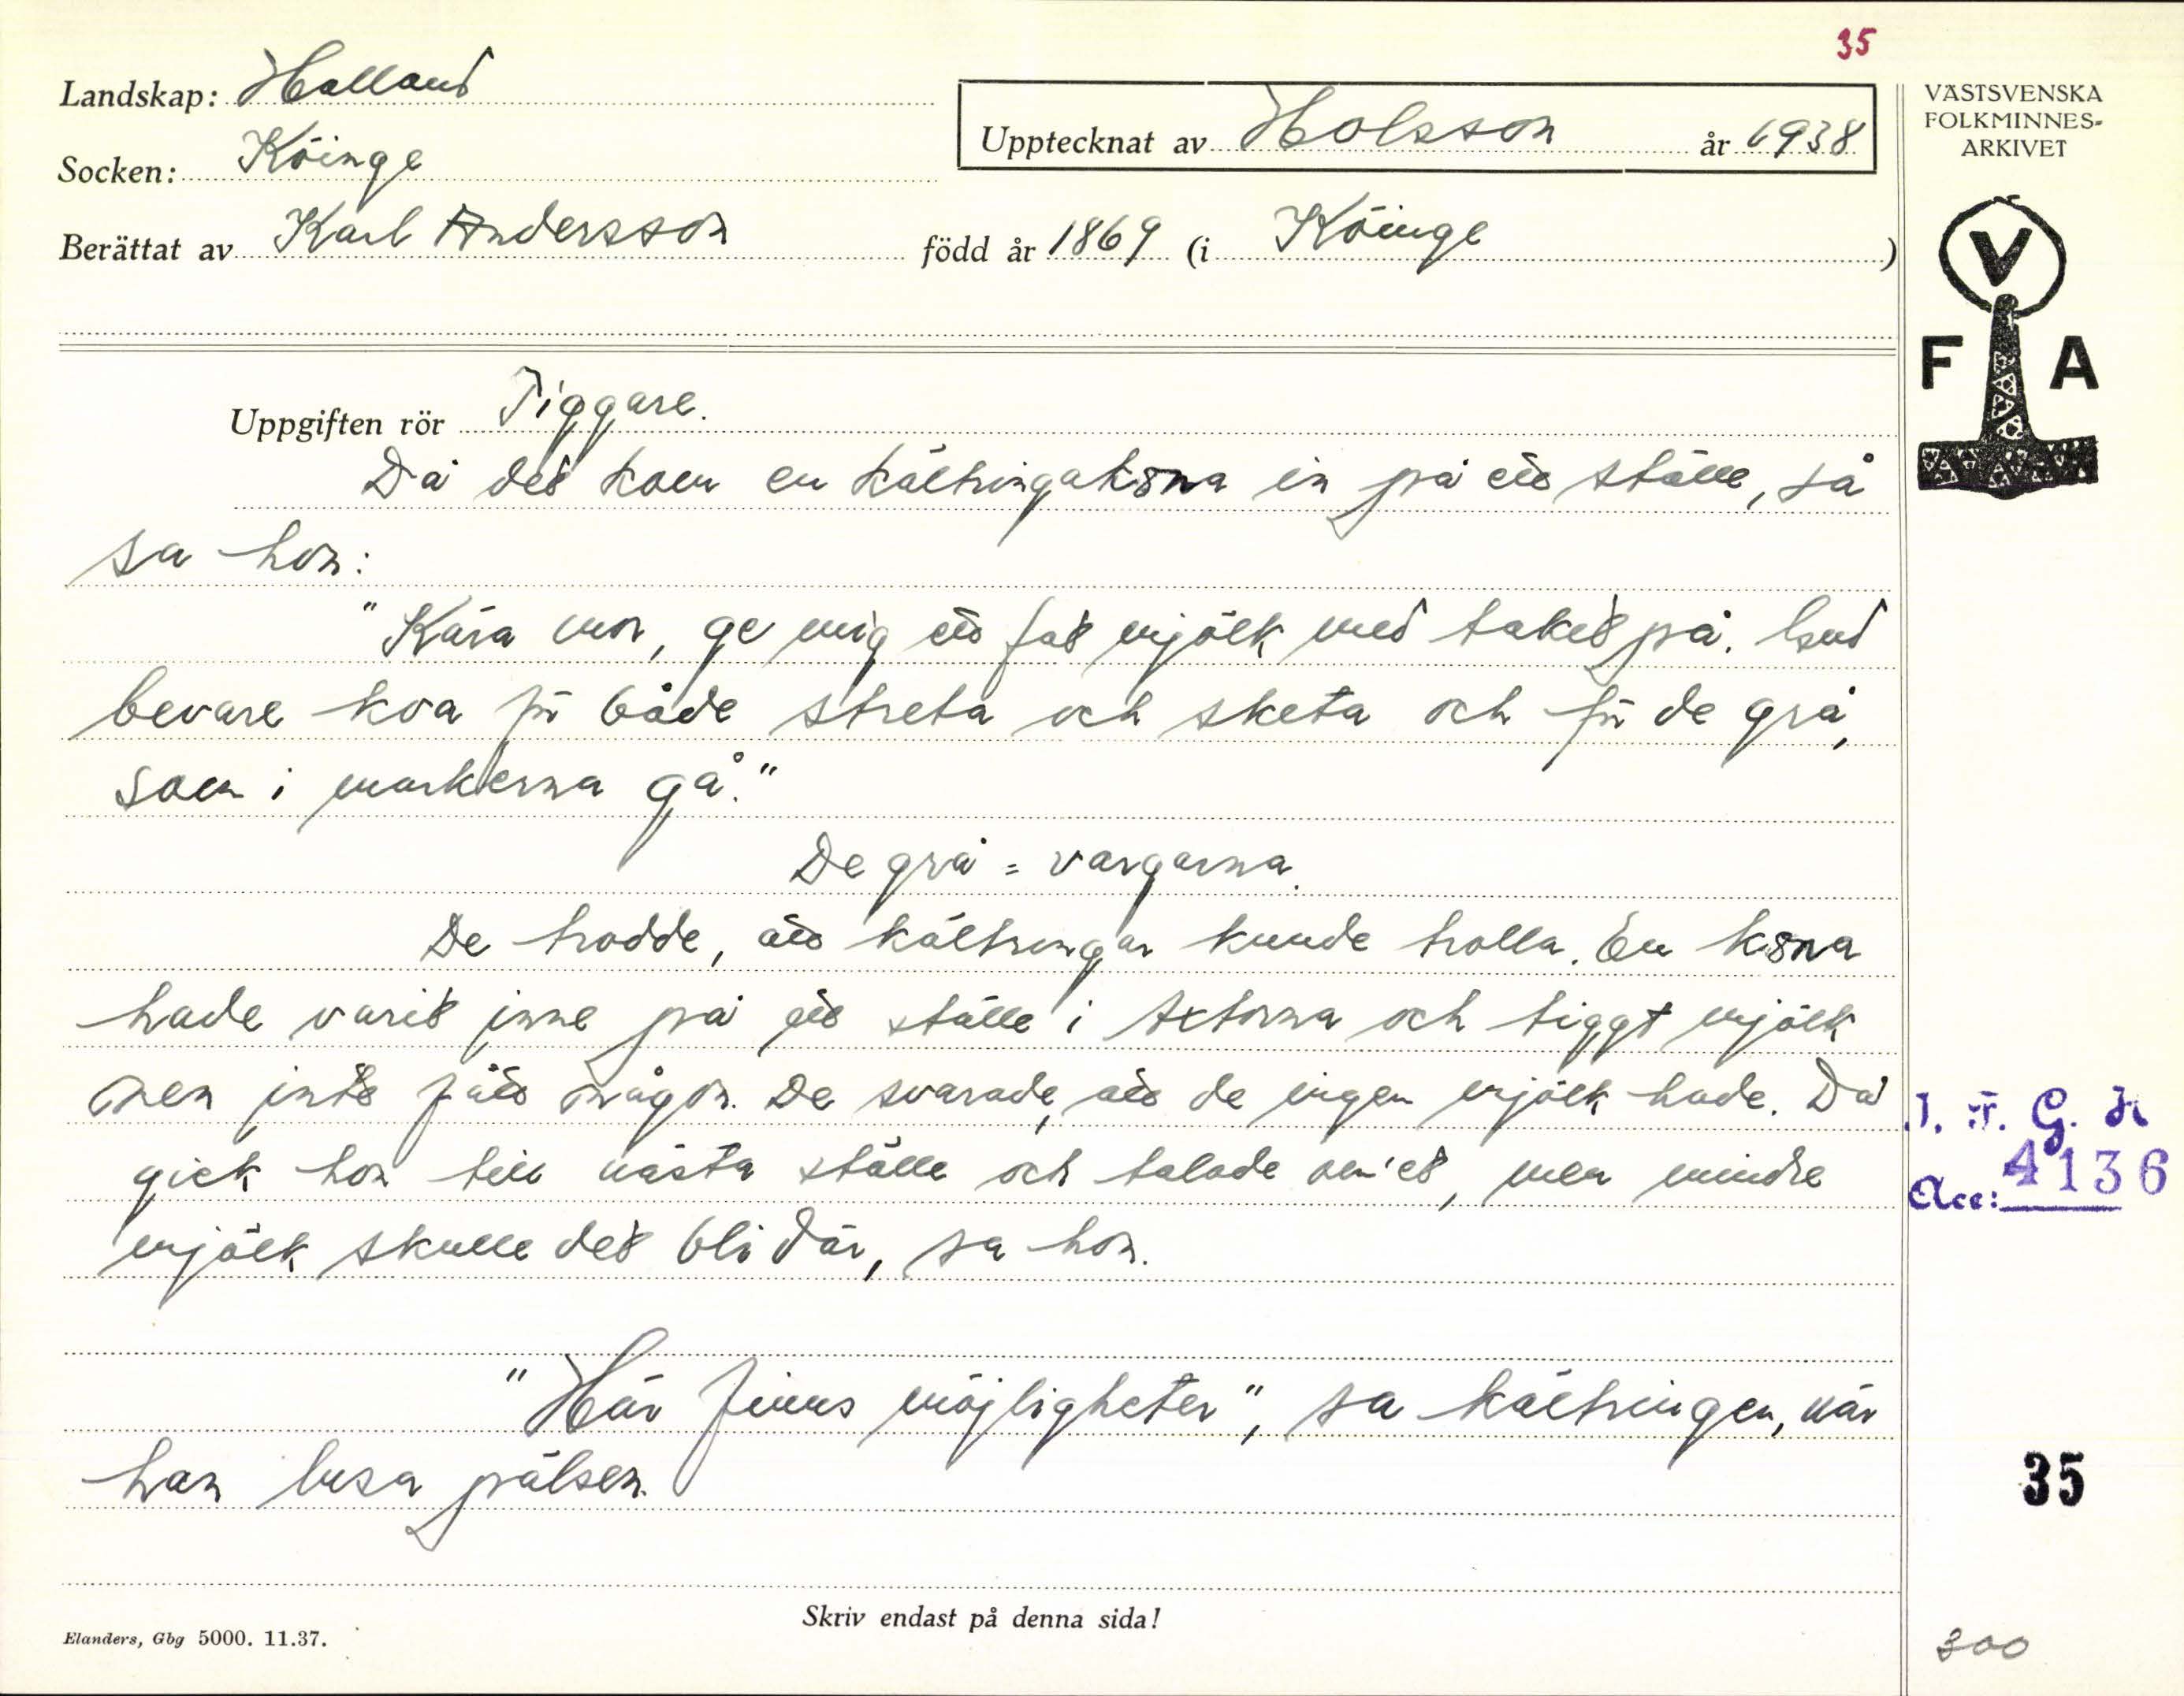 35
Landskap: Halland
Upptecknat av Holsson år 1938
VÄSTSVENSKA
FOLKMINNES-
ARKIVET
Socken: Köinge
Berättat av Karl Andersson född år 1869 (i Köinge)
V
F A
Uppgiften rör Tiggare.
Då det kom en kältringakona in på ett ställe, så
sa hon:
"Kära mor, ge mig ett fat mjölk med taket på. Gud
bevare koa för både streta och sketa och för de grå,
som i markerna gå."
De grå = vargarna.
De trodde, att kältringar kunde trolla. En kona
hade varit inne på ett ställe i Axtorna och tiggt mjölk
men inte fått någon. De svarade, att de ingen mjölk hade. Då
gick hon till nästa ställe och talade om'et, men mindre
mjölk skulle det bli där, sa hon.
"Här finns möjligheter", sa kältringen, när
han lusa pälsen.
I. F. G. H
Acc: 4136
35
Skriv endast på denna sida!
Elanders, Gbg 5000. 11.37.
300